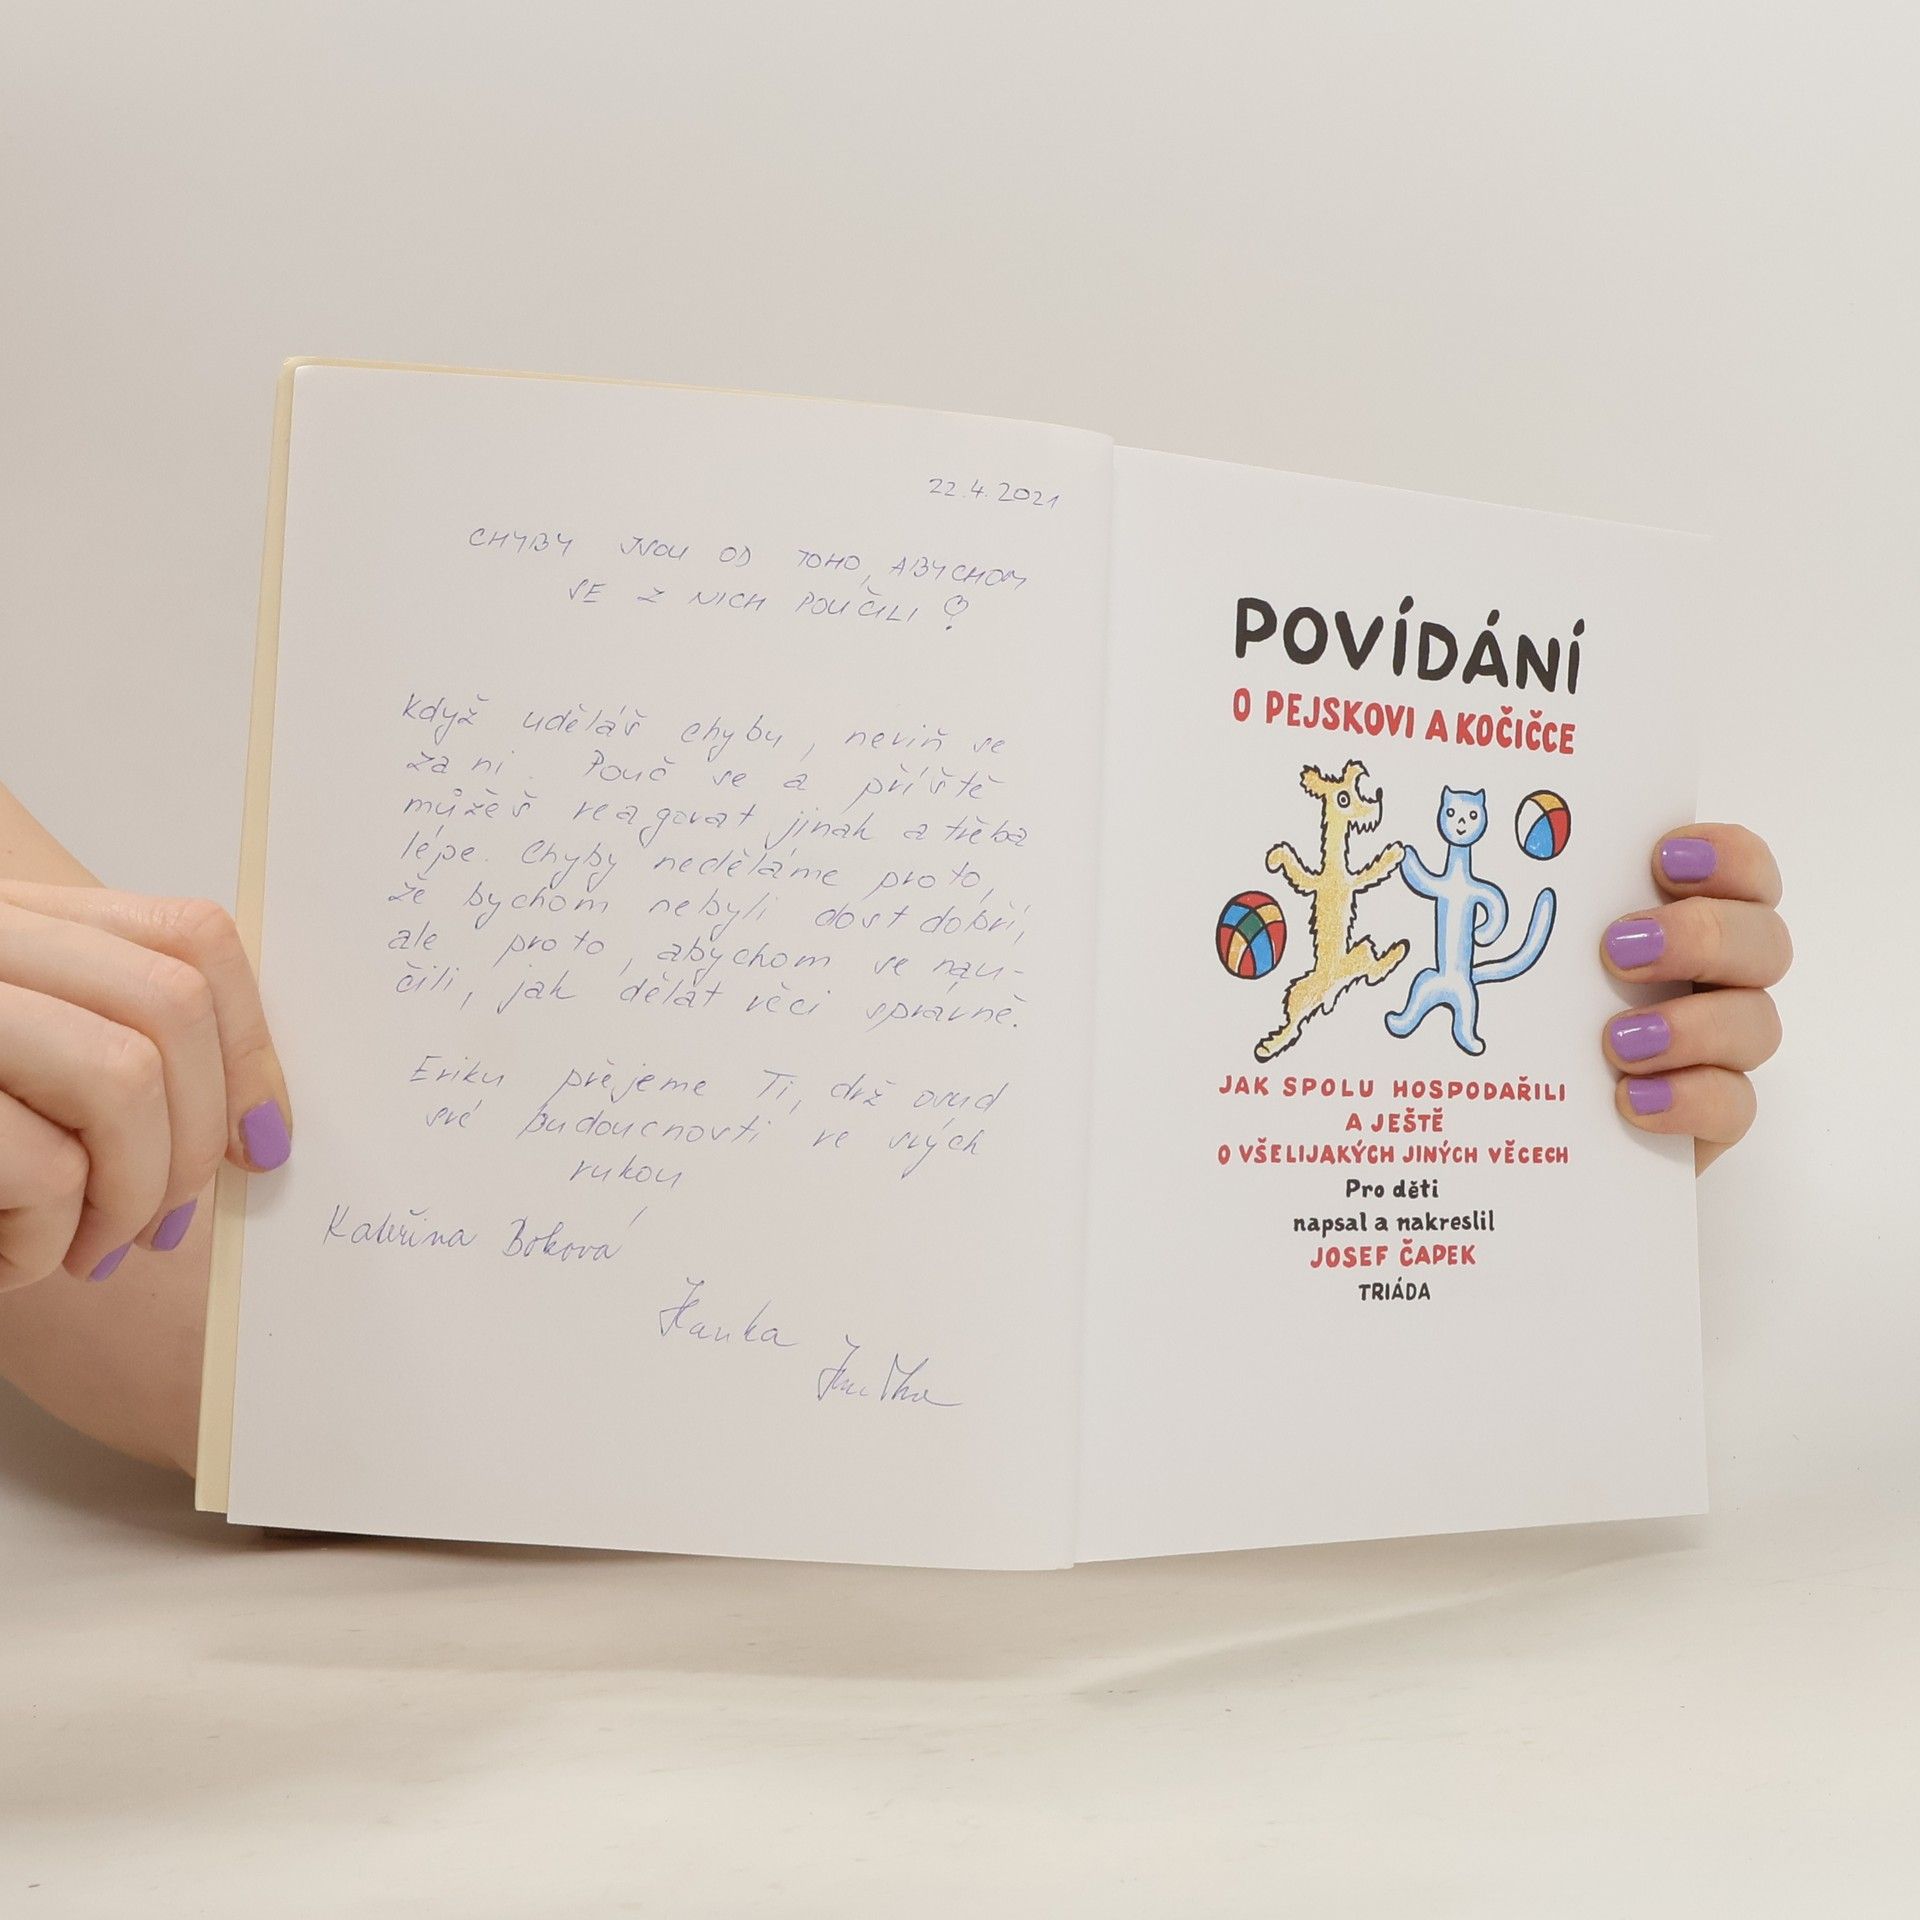 22.4.2021
CHYBY JSOU OD TOHO, ABYCHOM
SE Z NICH POUČILI
Když uděláš chybu, neviň se
za ni. Pouč se a příště
můžeš reagovat jinak a třeba
lépe. Chyby neděláme proto,
že bychom nebyli dost dobří,
ale proto, abychom se nau-
čili, jak dělat věci správně.
Eriku přejeme Ti, drž osud
své budoucnosti ve svých
rukou
Kateřina Boková
Hanka
POVÍDÁNÍ
O PEJSKOVI A KOČIČCE
JAK SPOLU HOSPODAŘILI
A JEŠTĚ
O VŠELIJAKÝCH JINÝCH VĚCECH
Pro děti
napsal a nakreslil
JOSEF ČAPEK
TRIÁDA